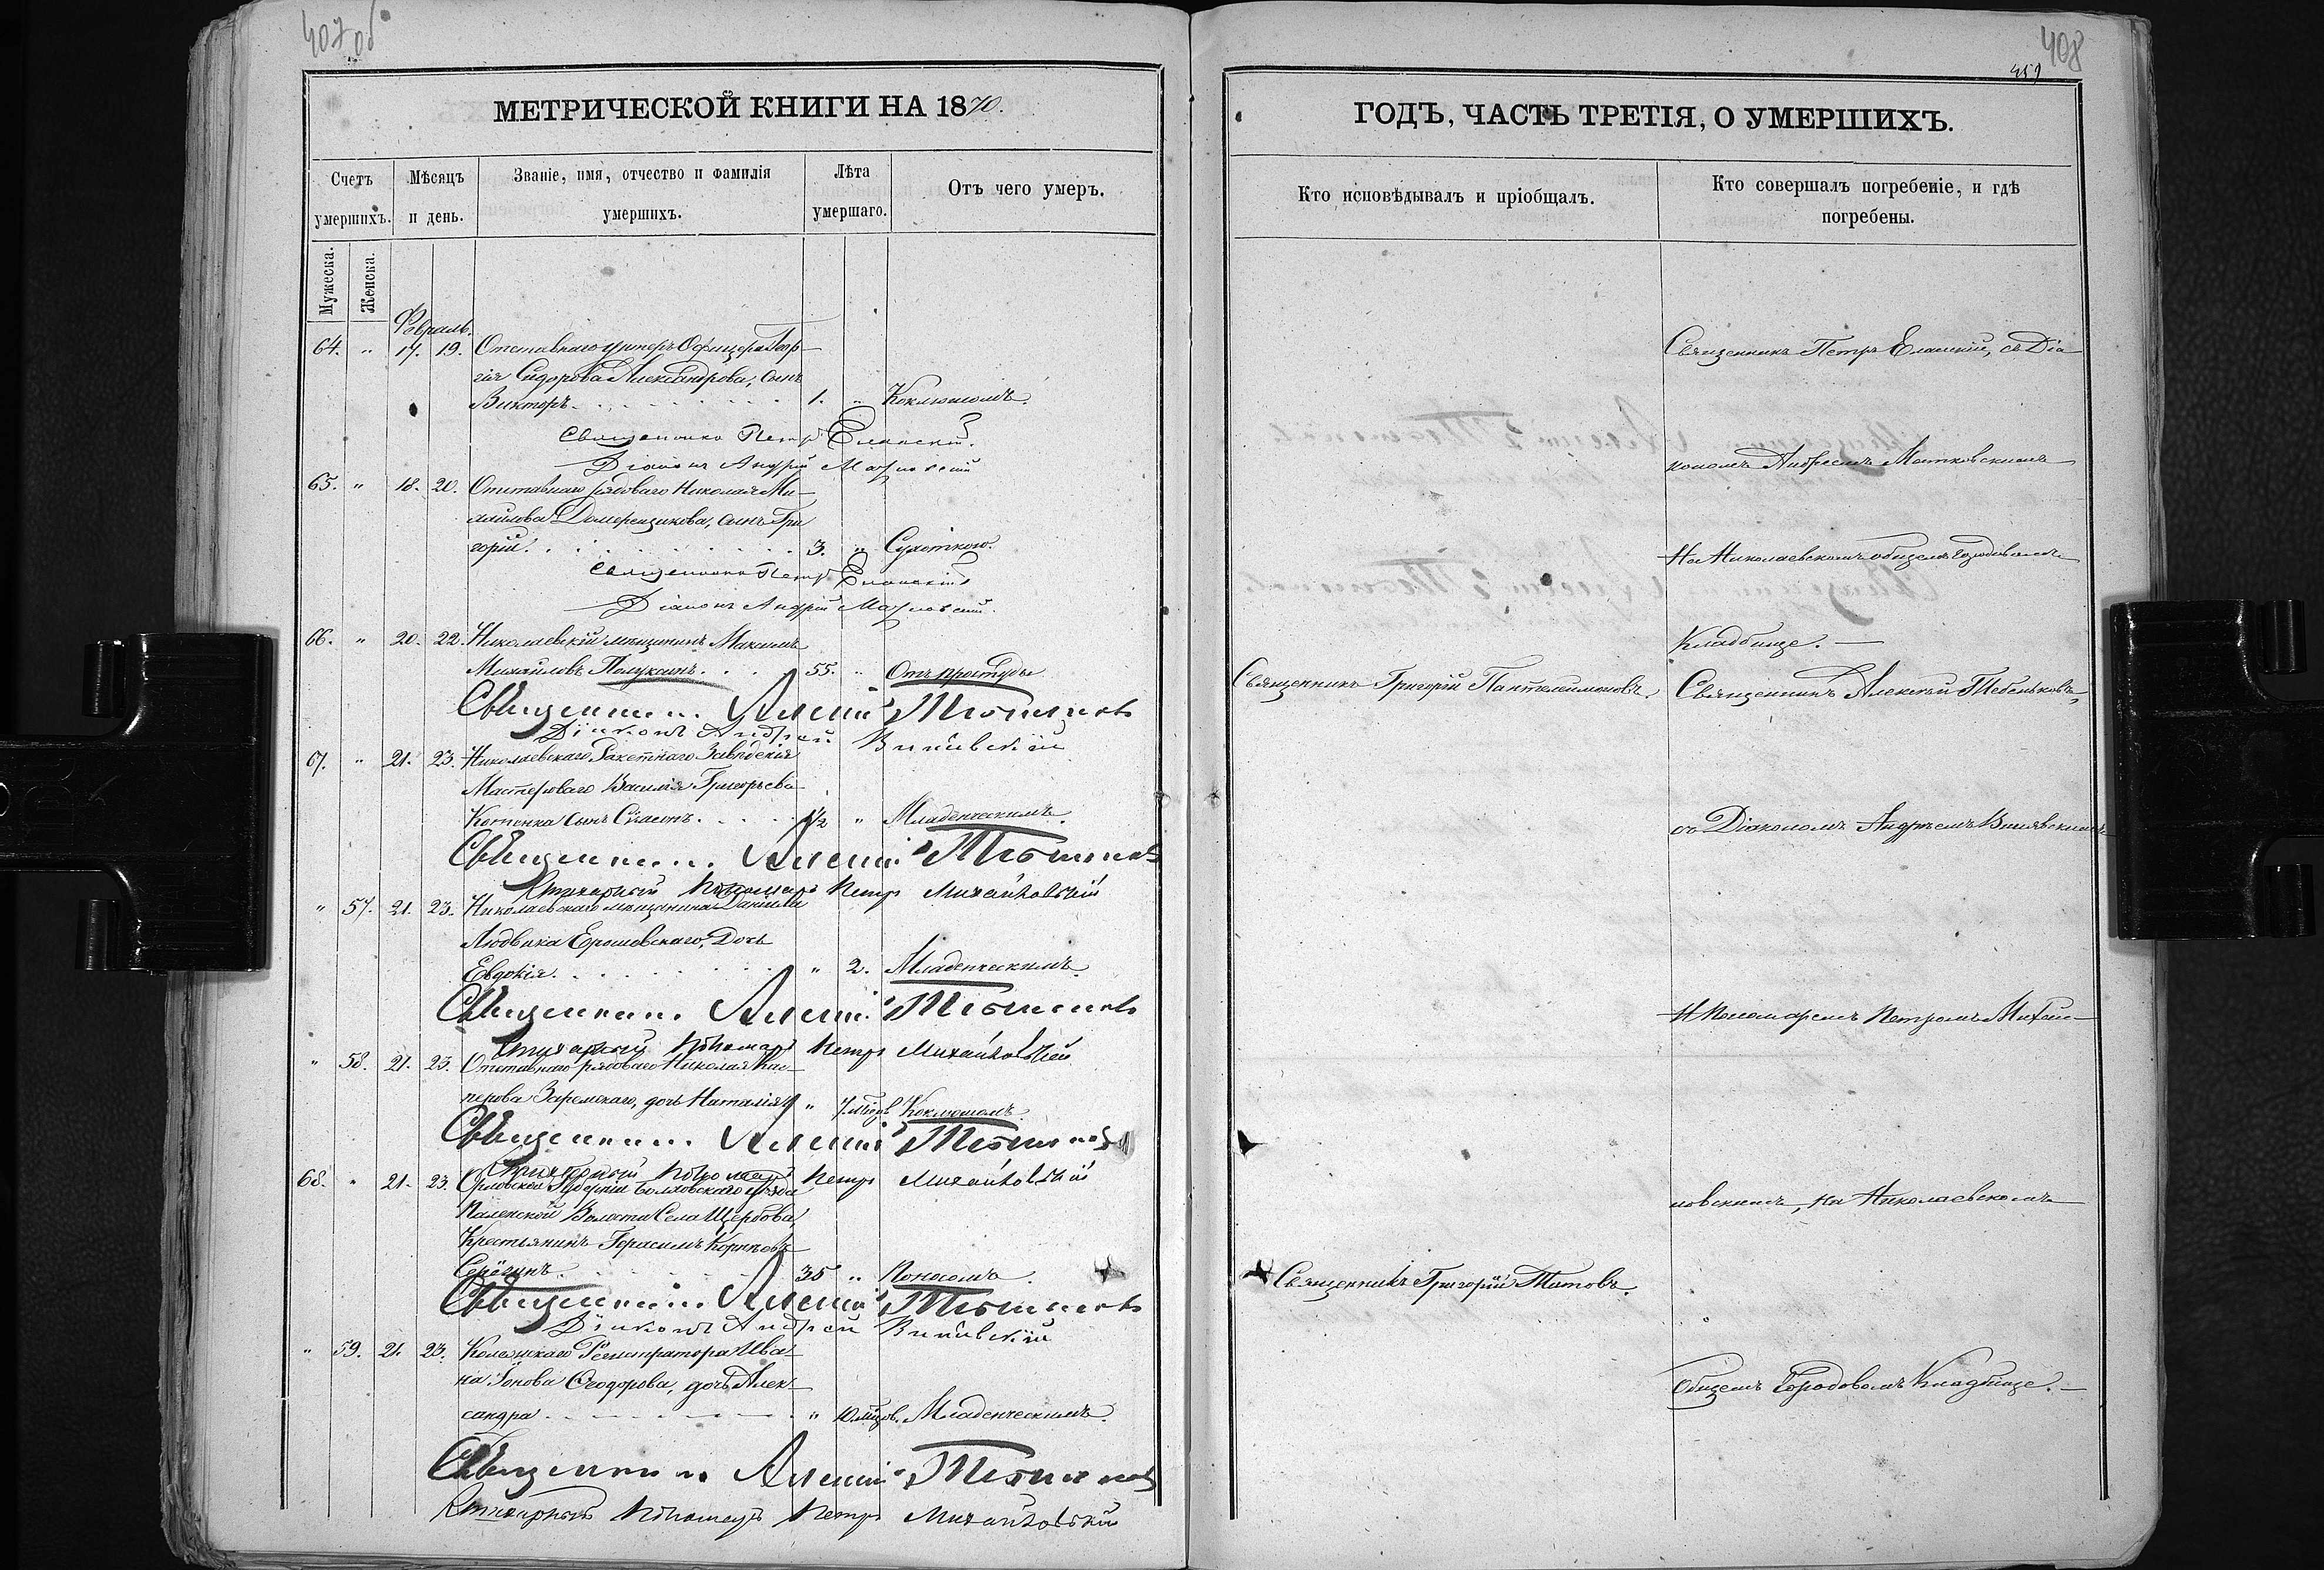 407 об
МЕТРИЧЕСКОЙ КНИГИ НА 1870.
Счетъ умершихъ.
Мѣсяцъ и день.
Званіе, имя, отчество и фамилія умершихъ.
Лѣта умершаго.
Отъ чего умеръ.
Мужеска.
Женска.
Февраль.
64. " 17. 19. Отставнаго унтеръ Офицера Геор-
гія Сидорова Александрова, сынъ
Викторъ. 1. " Коклюшомъ.
Священникъ Петръ Еланскій.
Діаконъ Андрей
65. " 18. 20. Отставнаго рядоваго Николая Ми-
хайлова сынъ Гри
горій. 3. " Сухоткою.
Священникъ Петръ Еланскій
Діаконъ Андрей
66. " 20. 22. Николаевскій мѣщанинъ Максимъ
Михайловъ 55. " Отъ простуды
Священникъ Алексій Тебеньковъ
Діаконъ Андрей
67. " 21. 23. Николаевскаго Ракетнаго Заведенія
Мастероваго Василія Григорьева
сынъ 1/2 " Младенческимъ.
Священникъ Алексій Тебеньковъ
Стихарный Пономарь Петръ Михайловскій
" 57. 21. 23. Николаевскаго мѣщанина Даніила
Людвика Ерошевскаго, Дочь
Евдокія. " 2. Младенческимъ.
Священникъ Алексій Тебеньковъ
Стихарный Пономарь Петръ Михайловскій
" 58. 21. 23. Отставнаго рядоваго Николая Кас-
перова Заремскаго, дочь Наталія " 7. мѣсяц. Коклюшомъ.
Священникъ Алексій Тебеньковъ
Стихарный Пономарь Петръ Михайловскій
68. " 21. 23. Орловской Губерніи Болховскаго уѣзда
Волости Села Щербова,
Крестьянинъ Герасимъ
Серёгинъ. 35 " Поносомъ.
Священникъ Алексій Тебеньковъ
Діаконъ Андрей
" 59. 21. 23. Колежскаго Регистратора Ива-
на Іонова Ѳеодорова, дочь Алек-
сандра " 10. мѣсяц. Младенческимъ.
Священникъ Алексій Тебеньковъ
Стихарный Пономарь Петръ Михайловскій
408
459
ГОДЪ, ЧАСТЬ ТРЕТІЯ, О УМЕРШИХЪ.
Кто исповѣдывалъ и пріобщалъ.
Кто совершалъ погребеніе, и гдѣ погребены.
Священникъ Петръ Еланскій, съ Діа
кономъ Андреемъ
На Николаевскомъ общемъ городовомъ
Кладбище. —
Священникъ Григорій Пантелеимоновъ.
Священникъ Алексѣй Тебеньковъ,
съ Діакономъ Андреемъ
И Пономаремъ Петромъ Михай-
ловскимъ, на Николаевскомъ
Священникъ Григорій Титовъ.
Общемъ Городовомъ Кладбище. —